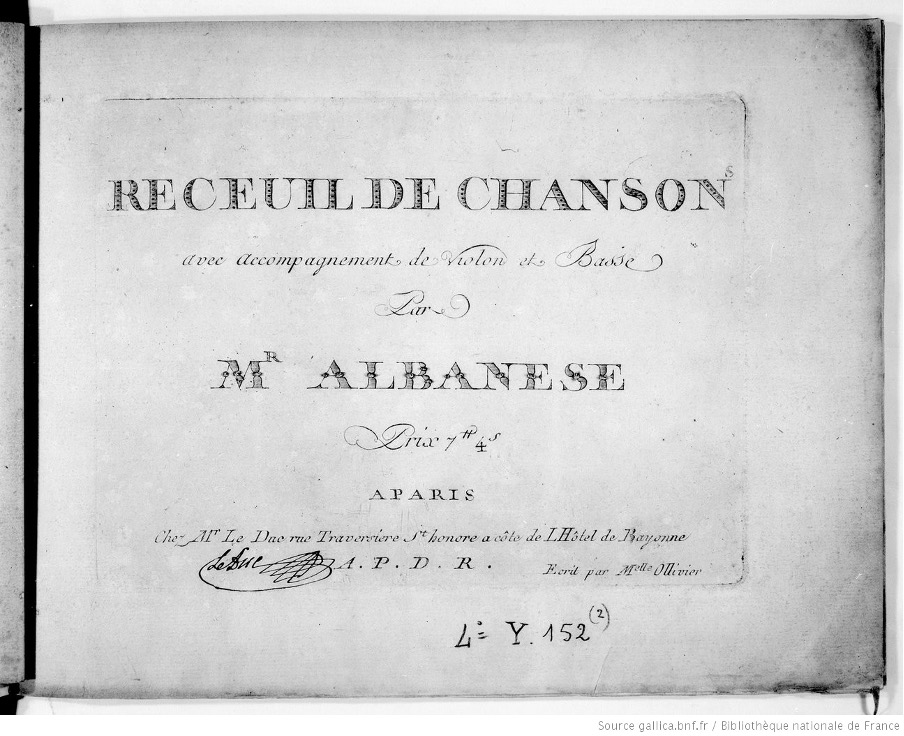 RECEUIL DE CHANSONS
avec accompagnement de Violon et Basse
Par
MR ALBANESE
Prix 7tt 4s
A PARIS
Chez Mr Le Duc rue Traversiere St honore a côte de L'Hôtel de Bayonne
le Duc A. P. D. R.
Ecrit par Melle Ollivier
4º Y. 152 (2)
Source gallica.bnf.fr / Bibliothèque nationale de France